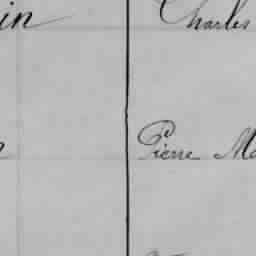 in Charles
Pierre Ma